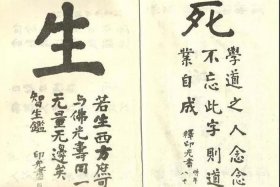 死
學道之人念念
不忘此字則道
業自成
釋印光書
生
若生西方庶可
与佛光壽同一
无量无邊矣
智生鑑